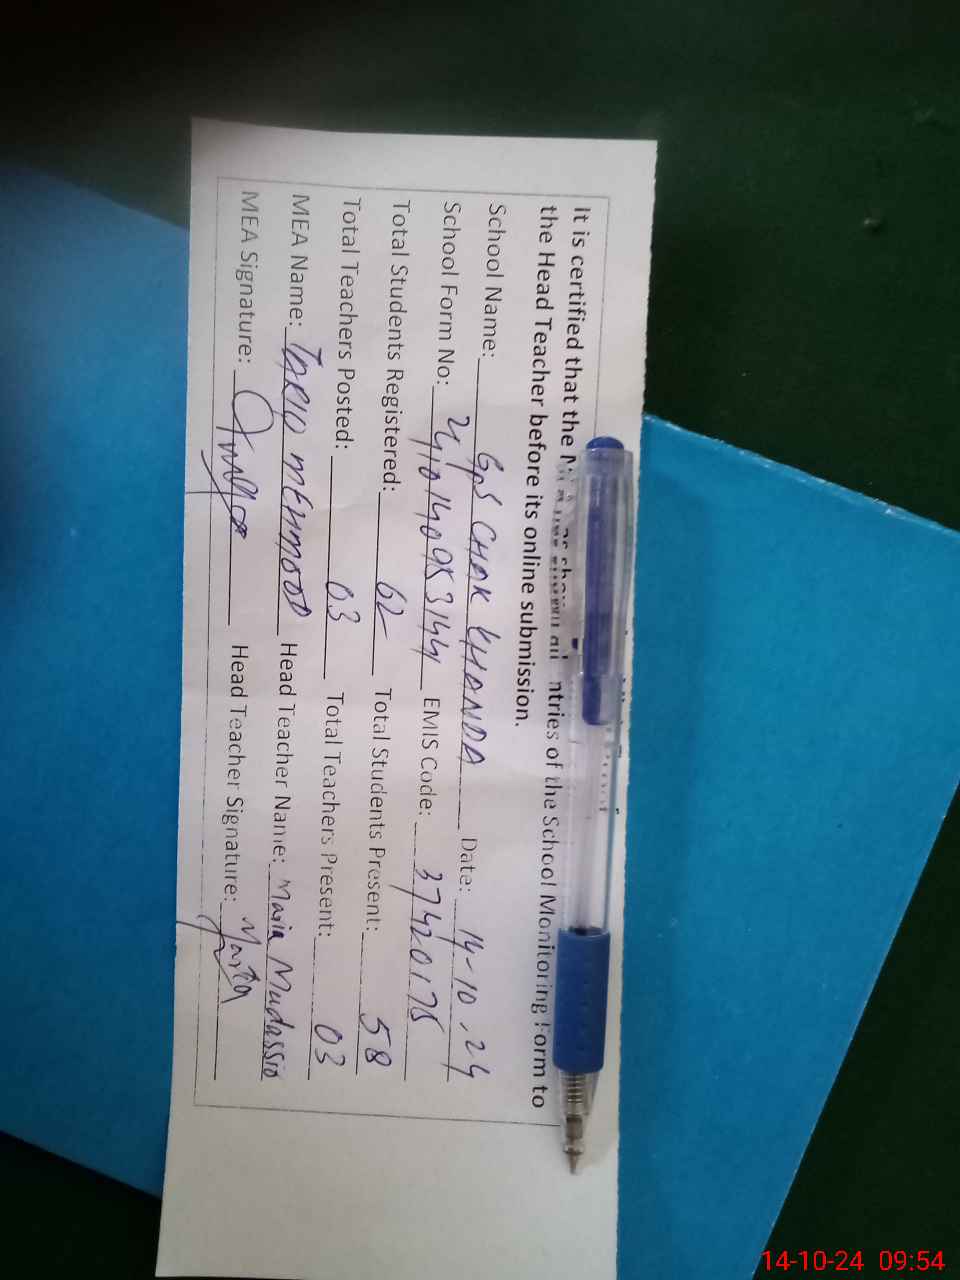 It is certified that the ntries of the School Monitoring Form to
the Head Teacher before its online submission.
School Name: GPS CHAK KHANDA Date: 14-10-24
School Form No: EMIS Code: 37420175
Total Students Registered: 62 Total Students Present: 58
Total Teachers Posted: 03 Total Teachers Present: 03
MEA Name: TARIQ MEHMOOD Head Teacher Name: Maria Mudassir
MEA Signature: Head Teacher Signature: Maria
14-10-24 09:54